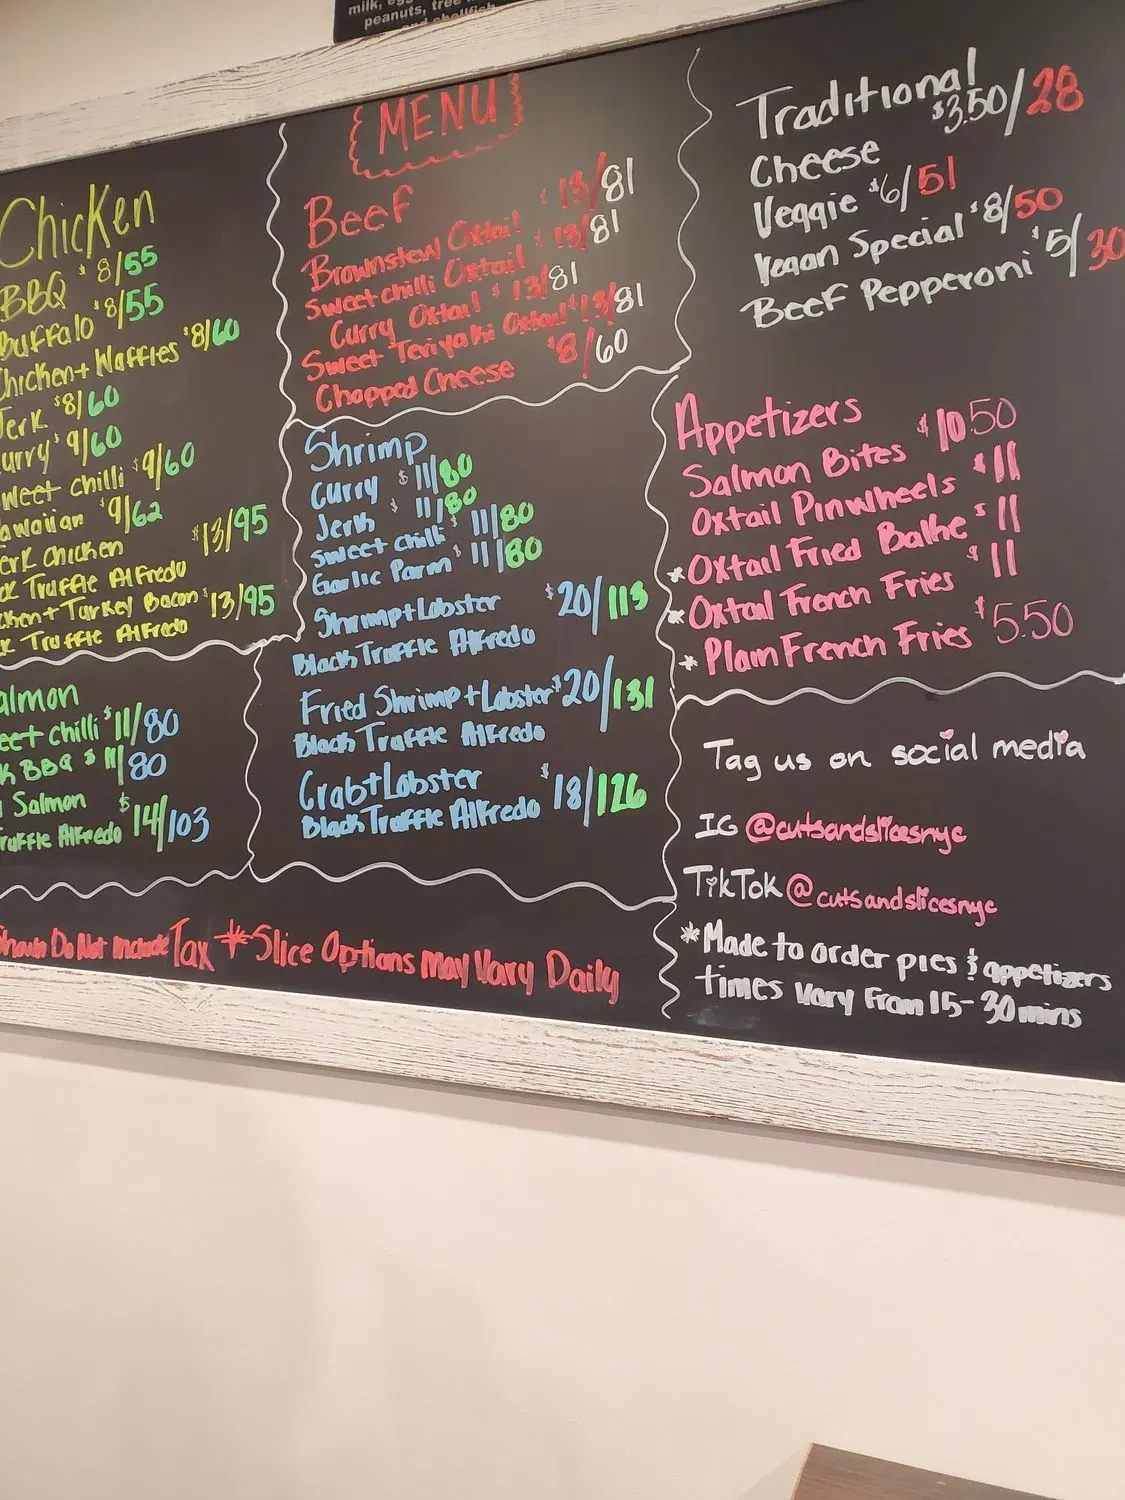 milk,
peanuts, tree
MENU
Chicken
BBQ $8/55
Buffalo $8/55
Chicken+Waffles $8/60
Jerk $8/60
urry $9/60
weet chilli $9/60
awaiian $9/62
erk chicken $13/95
ck Truffle Alfredo
cken+Turkey Bacon $13/95
ck Truffle Alfredo
almon
eet chilli $11/80
k BBQ $11/80
Salmon
ruffle Alfredo $14/103
Beef
Brownstew Oxtail $13/81
Sweet chilli Oxtail $13/81
Curry Oxtail $13/81
Sweet Teriyaki Oxtail $13/81
Chopped Cheese $8/60
Shrimp
Curry $11/80
Jerk $11/80
Sweet chilli $11/80
Garlic Parm $11/80
Shrimp+Lobster $20/113
Black Truffle Alfredo
Fried Shrimp+Lobster $20/131
Black Truffle Alfredo
Crab+Lobster
Black Truffle Alfredo $18/126
Traditional
Cheese $3.50/28
Veggie $6/51
Vegan Special $8/50
Beef Pepperoni $5/30
Appetizers
Salmon Bites $10.50
Oxtail Pinwheels $11
*Oxtail Fried Balhe $11
*Oxtail French Fries $11
*Plain French Fries $5.50
Tag us on social media
IG @cutsandslicesnyc
TikTok @cutsandslicesnyc
*Made to order pies & appetizers
times vary from 15-30 mins
Shown Do Not Include Tax *Slice Options May Vary Daily